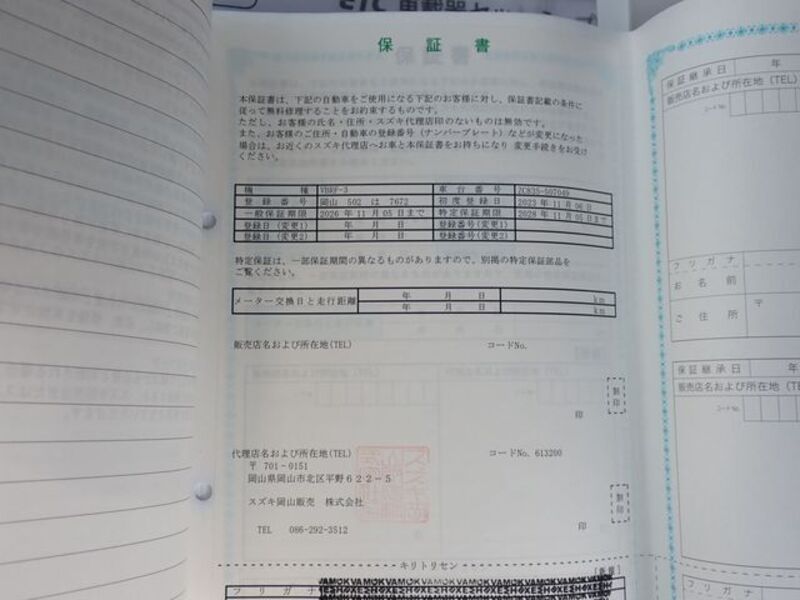 ETC 車載器セット
保証書
本保証書は、下記の自動車をご使用になる下記のお客様に対し、保証書記載の条件に
従って無料修理することをお約束するものです。
ただし、お客様の氏名・住所・スズキ代理店印のないものは無効です。
また、お客様のご住所・自動車の登録番号(ナンバープレート)などが変更になった
場合は、お近くのスズキ代理店へお車と本保証書をお持ちになり 変更手続きをお受け
ください。
機 種 VBRF-3 車台番号 ZC83S-507049
登録番号 岡山 502 は 7672 初度登録日 2023 年 11 月 06 日
一般保証期限 2026 年 11 月 05 日まで 特定保証期限 2028 年 11 月 05 日まで
登録日(変更1) 年 月 日 登録番号(変更1)
登録日(変更2) 年 月 日 登録番号(変更2)
特定保証は、一部保証期間の異なるものがありますので、別掲の特定保証部品を
ご覧ください。
メーター交換日と走行距離 年 月 日 km
年 月 日 km
販売店名および所在地(TEL) コードNo.
割印
印
代理店名および所在地(TEL) コードNo. 613200
〒 701-0151
岡山県岡山市北区平野622-5
スズキ岡山販売 株式会社
割印
TEL 086-292-3512 印
キリトリセン
フリガナ
保証継承日 年
販売店名および所在地(TEL)
コードNo.
フリガナ
お名前
ご住所 〒
保証継承日 年
販売店名および所在地(TE
コードNo.
フリガナ